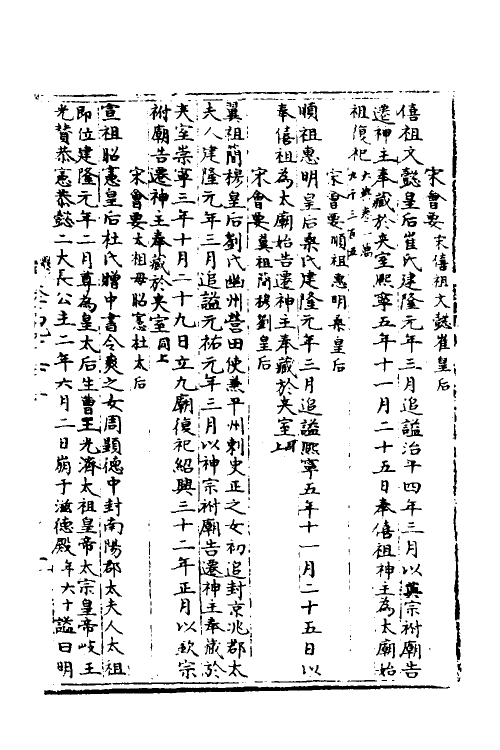 宋會要 宋僖祖文懿崔皇后
僖祖文懿皇后崔氏建隆元年三月追謚治平四年三月以英宗祔廟告
遷神主奉藏於夾室熙寧五年十一月二十五日奉僖祖神主為太廟始
祖復祀
宋會要 順祖惠明桑皇后
順祖惠明皇后桑氏建隆元年三月追謚熙寧五年十一月二十五日以
奉僖祖為太廟始告遷神主奉藏於夾室同上
宋會要 翼祖簡穆劉皇后
翼祖簡穆皇后劉氏幽州營田使兼平州刺史正之女初追封京兆郡太
夫人建隆元年三月追謚元祐元年三月以神宗祔廟告遷神主奉藏於
夾室崇寧三年十月二十九日立九廟復祀紹興三十二年正月以欽宗
祔廟告遷神主奉藏於夾室同上
宋會要 太祖母昭憲杜太后
宣祖昭憲皇后杜氏贈中書令爽之女周顯德中封南陽郡太夫人太祖
即位建隆元年二月尊為皇太后生曹王光濟太祖皇帝太宗皇帝岐王
光贊恭憲恭懿二大長公主二年六月二日崩于滋德殿年六十謚曰明